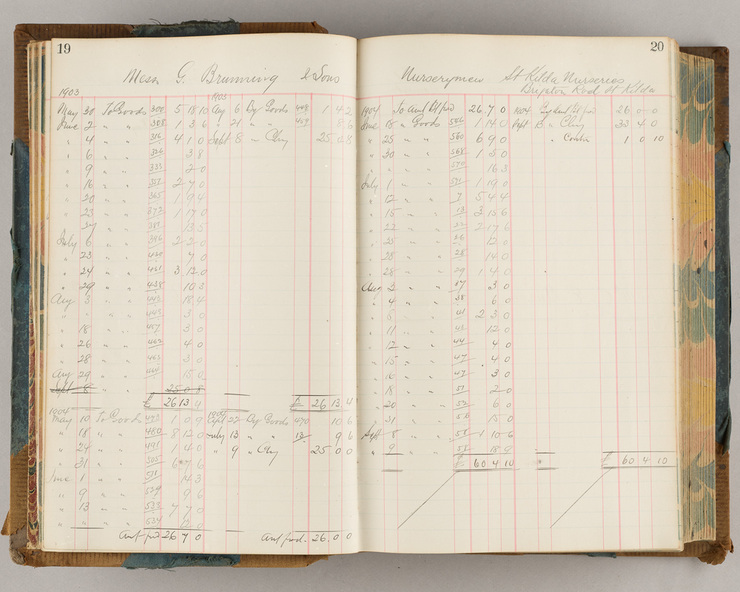 19
Mess G. Brunning & Sons
1903
1903
May 30 To Goods 300 5 18 10 Aug 6 By Goods 449 1 4 2
June 2 " " 308 1 3 6 " 21 " " 459 8 6
" 4 " " 4 1 0 Sept 8 " Chq 25 0 8
" 6 " " 3 8
" 9 " " 2 0
" 16 " " 2 7 0
" 20 " " 1 9 4
" 23 " " 372 1 17 0
" " " 13 5
July 6 " " 2 2 0
" 23 " " 7 0
" 24 " " 3 12 0
" 29 " " 438 10 3
Aug 3 " " 18 4
" " " 3 0
" 18 " " 3 0
" 26 " " 4 0
" 28 " " 3 0
Aug 29 " " 15 0
Sept 8 25 0 8
£ 26 13 4 £ 26 13 4
1904 1904
May 10 To Goods 1 0 9 22 By Goods 470 10 6
" 18 " " 480 8 12 0 July 13 " " 13 9 6
" 24 " " 491 1 4 0 " 9 " Chq 25 0 0
" 31 " " 6 7 6
June 1 " " 14 3
" 9 " " 9 6
" 13 " " 533 7 7 0
" " " 534 12 0
Amt fwd 26 7 0 Amt fwd 26 0 0
20
Nurserymen St Kilda Nurseries
Brighton Road St Kilda
1904 To Amt Bt fwd 26 7 0 1904 By Amt Bt fwd 26 0 0
June 18 " Goods 1 14 0 Sept " Chq 33 4 0
" 25 " " 560 6 9 0 " Contra 1 0 10
" 30 " " 568 1 5 0
" " " 570 16 3
July 1 " " 1 19 0
" 12 " " 7 5 4 4
" 15 " " 13 3 15 6
" 22 " " 22 2 17 6
" 25 " " 12 0
" 25 " " 28 14 0
" 28 " " 29 1 4 0
Aug 2 " " 37 3 0
" 4 " " 38 6 0
" 6 " " 41 2 3 0
" 11 " " 12 0
" 12 " " 44 4 0
" 15 " " 47 4 0
" 16 " " 3 0
" 18 " " 51 2 0
" 20 " " 6 0
" 31 " " 15 0
Sept 8 " " 1 10 6
" 9 " " 18 9
£ 60 4 10 £ 60 4 10